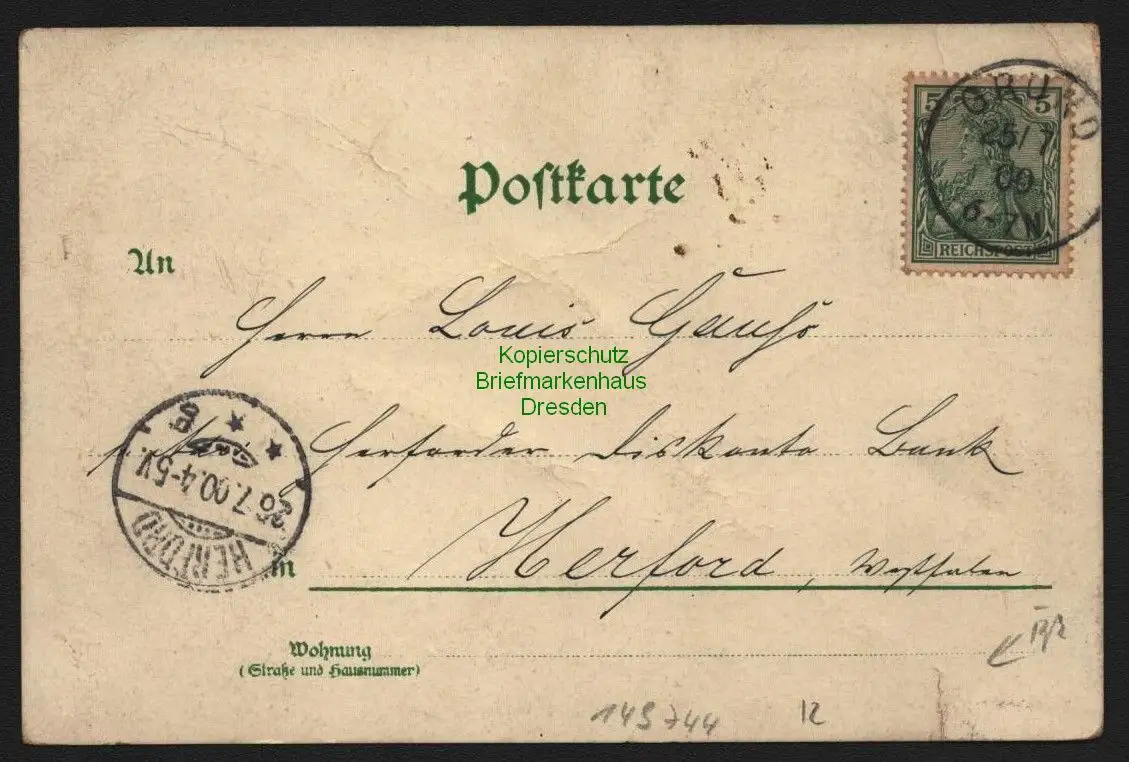 5 5
GRUND
25/7
00
6-7N
REICHSPOST
Postkarte
An
Herrn Louis
Kopierschutz
Briefmarkenhaus
Dresden
Herforder Diskonto Bank
26.7.00.4-5V.
HERFORD
in Herford, Westfalen
Wohnung
(Straße und Hausnummer)
149744 12